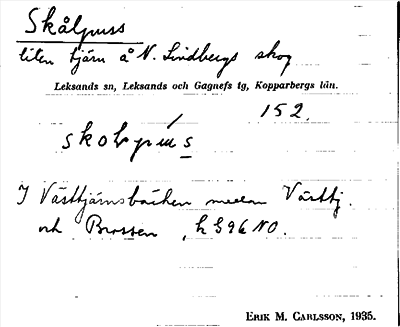 Skålpuss
liten tjärn å N. Lindbergs skog
Leksands sn, Leksands och Gagnefs tg, Kopparbergs län.
152.
I Västtjärnsbäcken mellan Västtj.
och Brossen, k 596 NO.
ERIK M. CARLSSON, 1935.